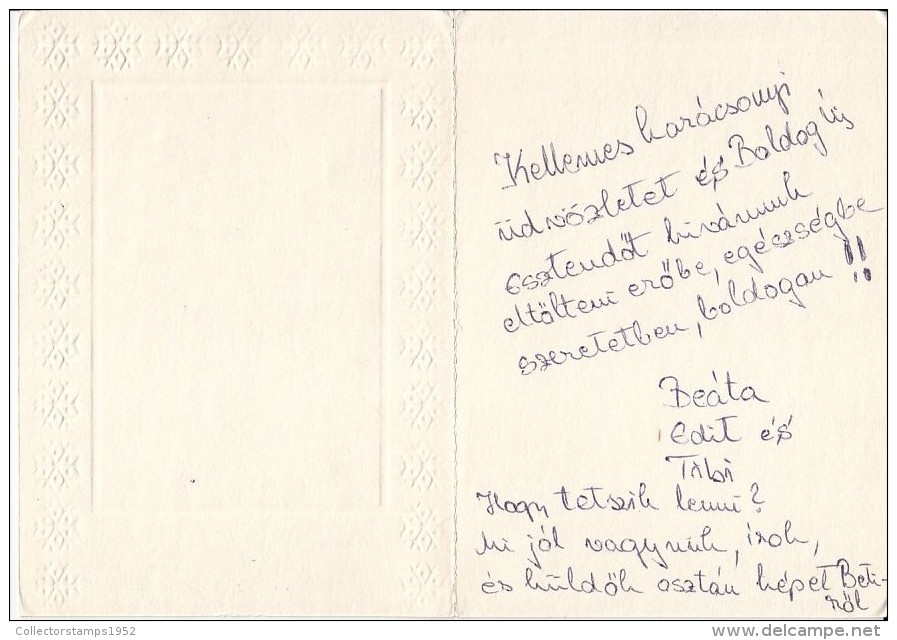 Kellemes karácsonyi
üdvözletet és Boldog új
esztendőt kívánunk
eltölteni erőbe, egészségbe
szeretetben, boldogan!!
Beáta
Edit és
Tibi
Hogy tetszik lenni?
Mi jól vagyunk, írok,
és küldök osztán képet Beti-
ről
Collectorstamps1952
www.delcampe.net